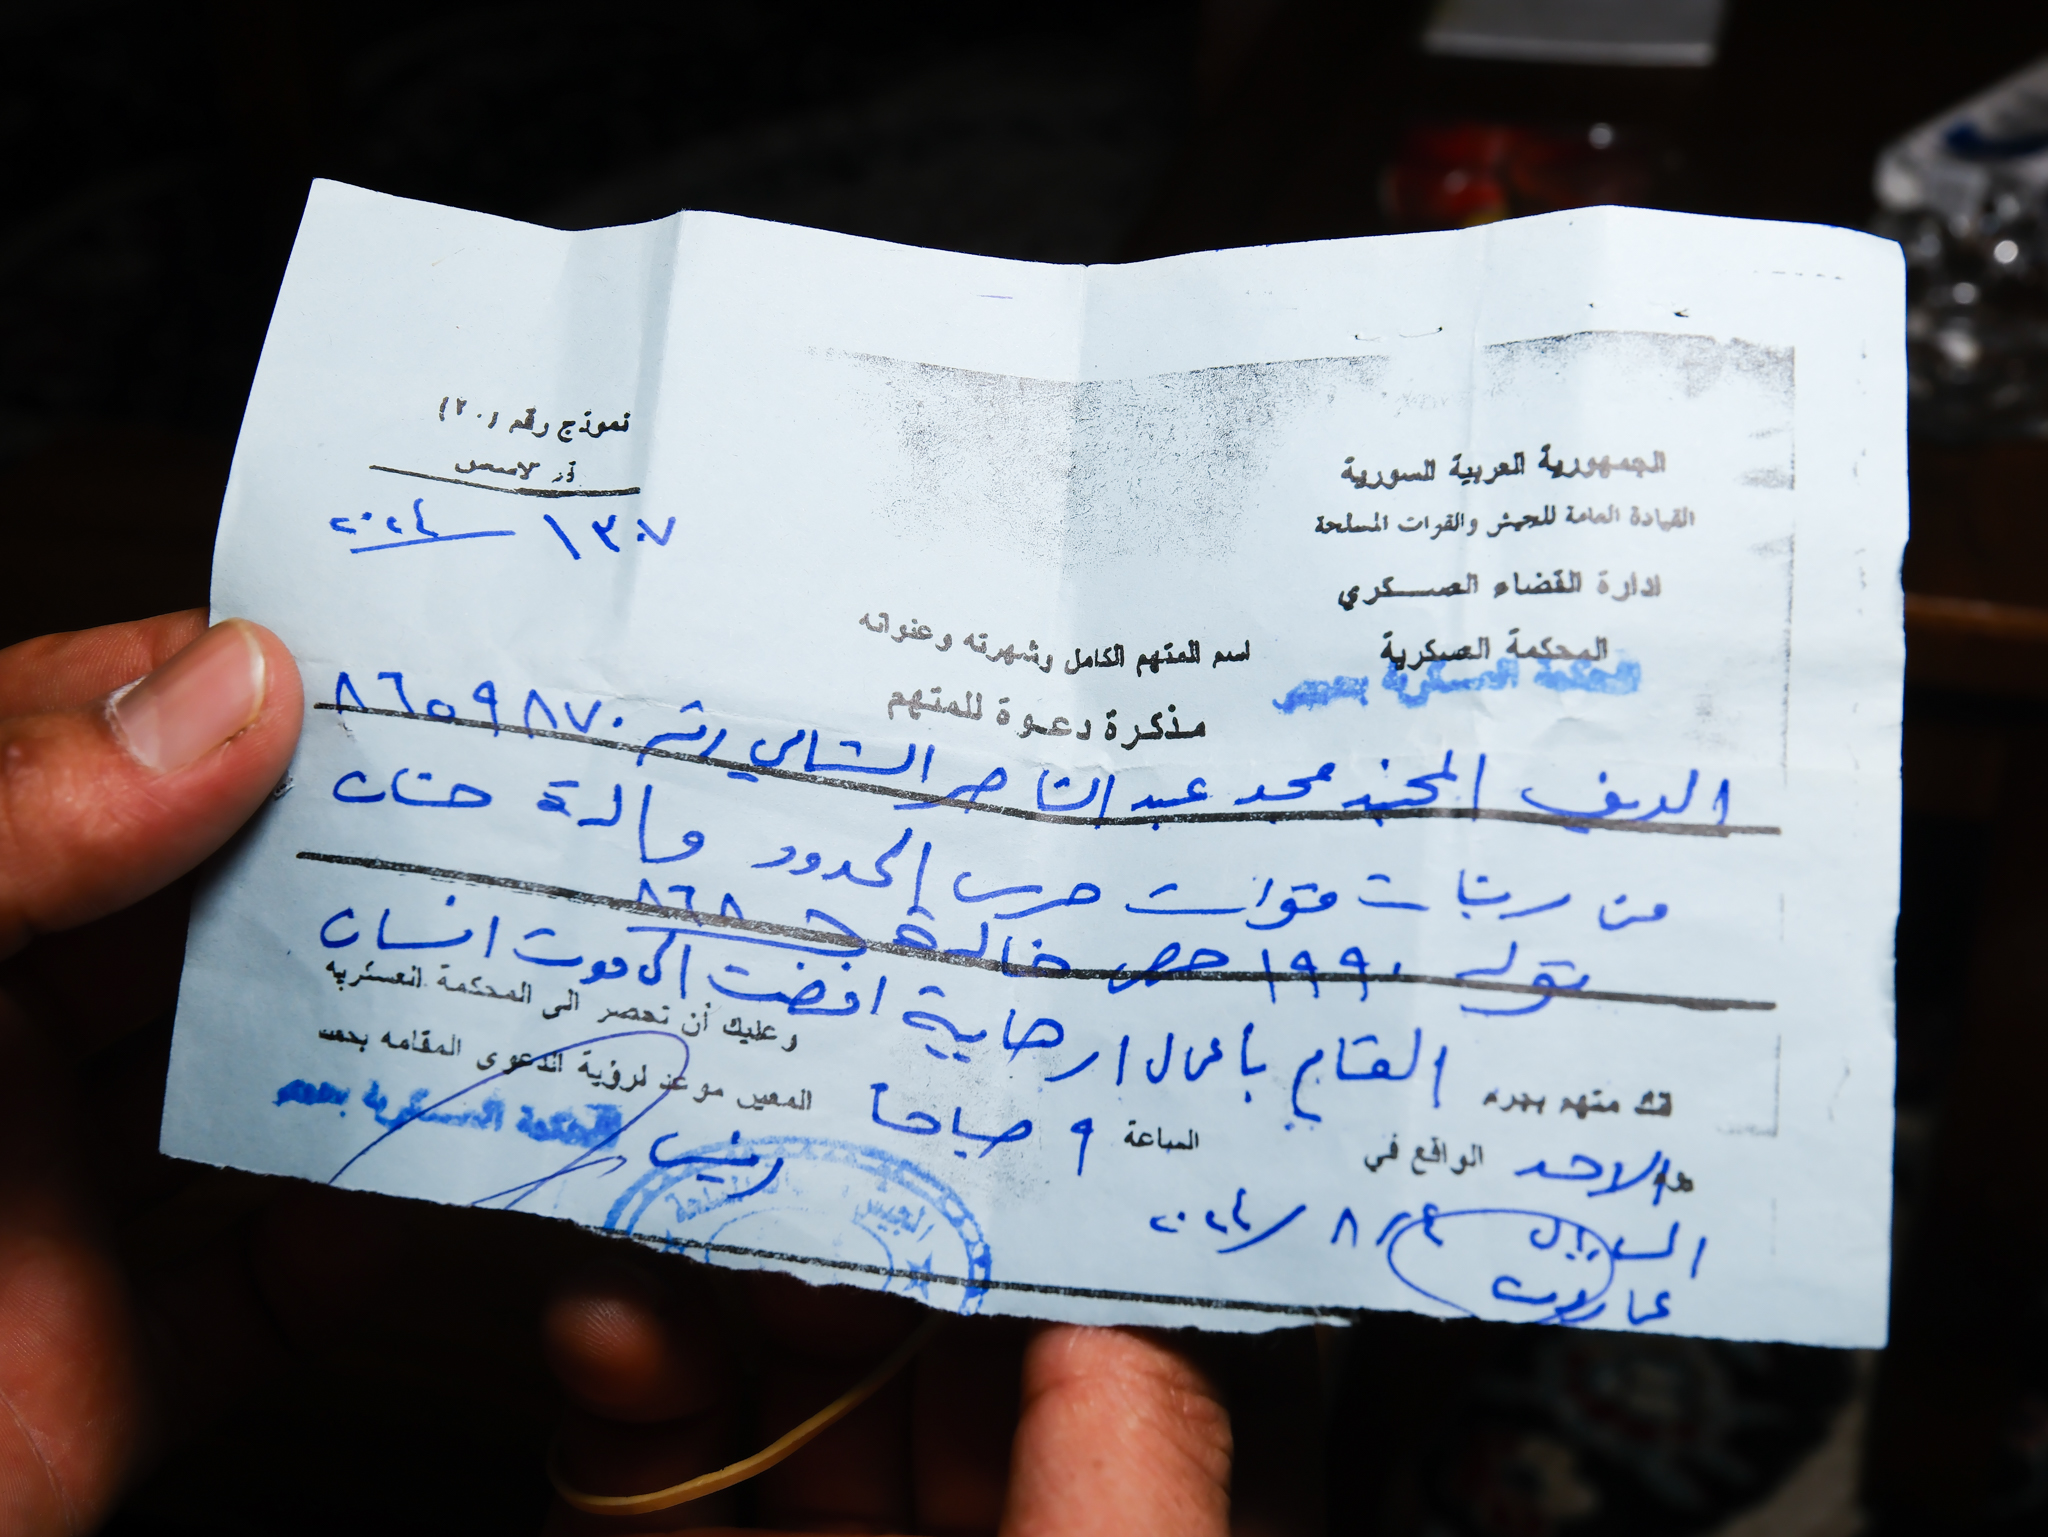 الجمهورية العربية السورية
القيادة العامة للجيش والقوات المسلحة
ادارة القضاء العسكري
المحكمة العسكرية
المحكمة العسكرية بحمص
نموذج رقم (٢٠)
١٣٠٧ / ٢٠٢٤
اسم المتهم الكامل وشهرته وعنوانه
مذكرة دعوة للمتهم
المجند محمد عبد الناصر الشامي رقم ٨٦٥٩٨٧٠
من مرتبات قوات حرس الحدود والدة حنان
تولد ١٩٩٠ حمص خالدية خ ٨٦٨
متهم بجرم القيام بأعمال ارهابية افضت الى موت انسان
وعليك أن تحضر الى المحكمة العسكرية
الاحد الواقع في الساعة ٩ صباحا المعين موعد لرؤية الدعوى المقامه بحقك
٤ / ٨ / ٢٠٢٤
المحكمة العسكرية بحمص
رئيس
الجيش